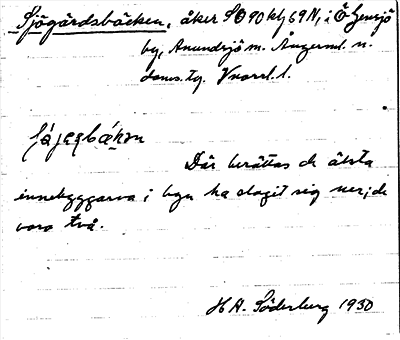 Sjögårdsbäcken, åker SO 90 kf 69 N, i Ö Gensjö
by, Anundsjö sn. Ångerml. n.
doms. tg. Vnorrl. l.
Där berättas de älsta
innebyggarna i byn ha slagit sig ner; de
voro två.
H A. Söderberg 1930